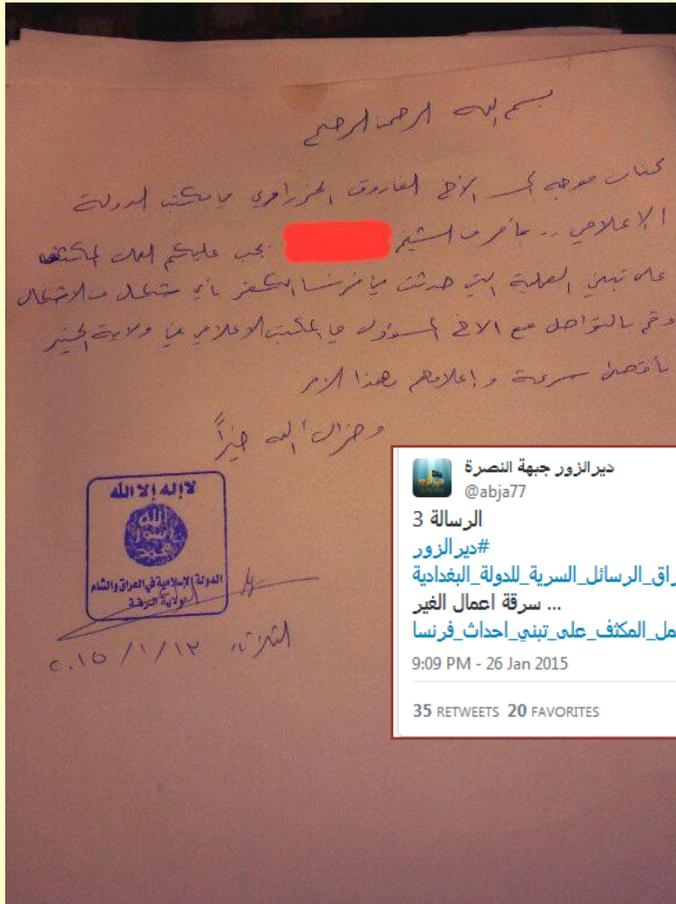 بسم الله الرحمن الرحيم
كتاب موجه إلى الأخ الفاروق في مكتب الدولة
الإعلامي .. بأمر من الشيخ يجب عليكم العمل المكثف
على تبني العملية التي حدثت في فرنسا الكفر بأي شكل من الأشكال
وقم بالتواصل مع الأخ المسؤول في المكتب الإعلامي في ولاية الخير
بأقصى سرعة وإعلامهم بهذا الأمر
وجزاك الله خيراً
لا إله إلا الله
الله
رسول
محمد
الدولة الإسلامية في العراق والشام
ولاية الرقة
الثلاثاء ٢٠١٥/١/١٣
ديرالزور جبهة النصرة
@abja77
الرسالة 3
#ديرالزور
راق_الرسائل_السرية_للدولة_البغدادية
... سرقة اعمال الغير
مل_المكثف_على_تبني_احداث_فرنسا
9:09 PM - 26 Jan 2015
35 RETWEETS 20 FAVORITES